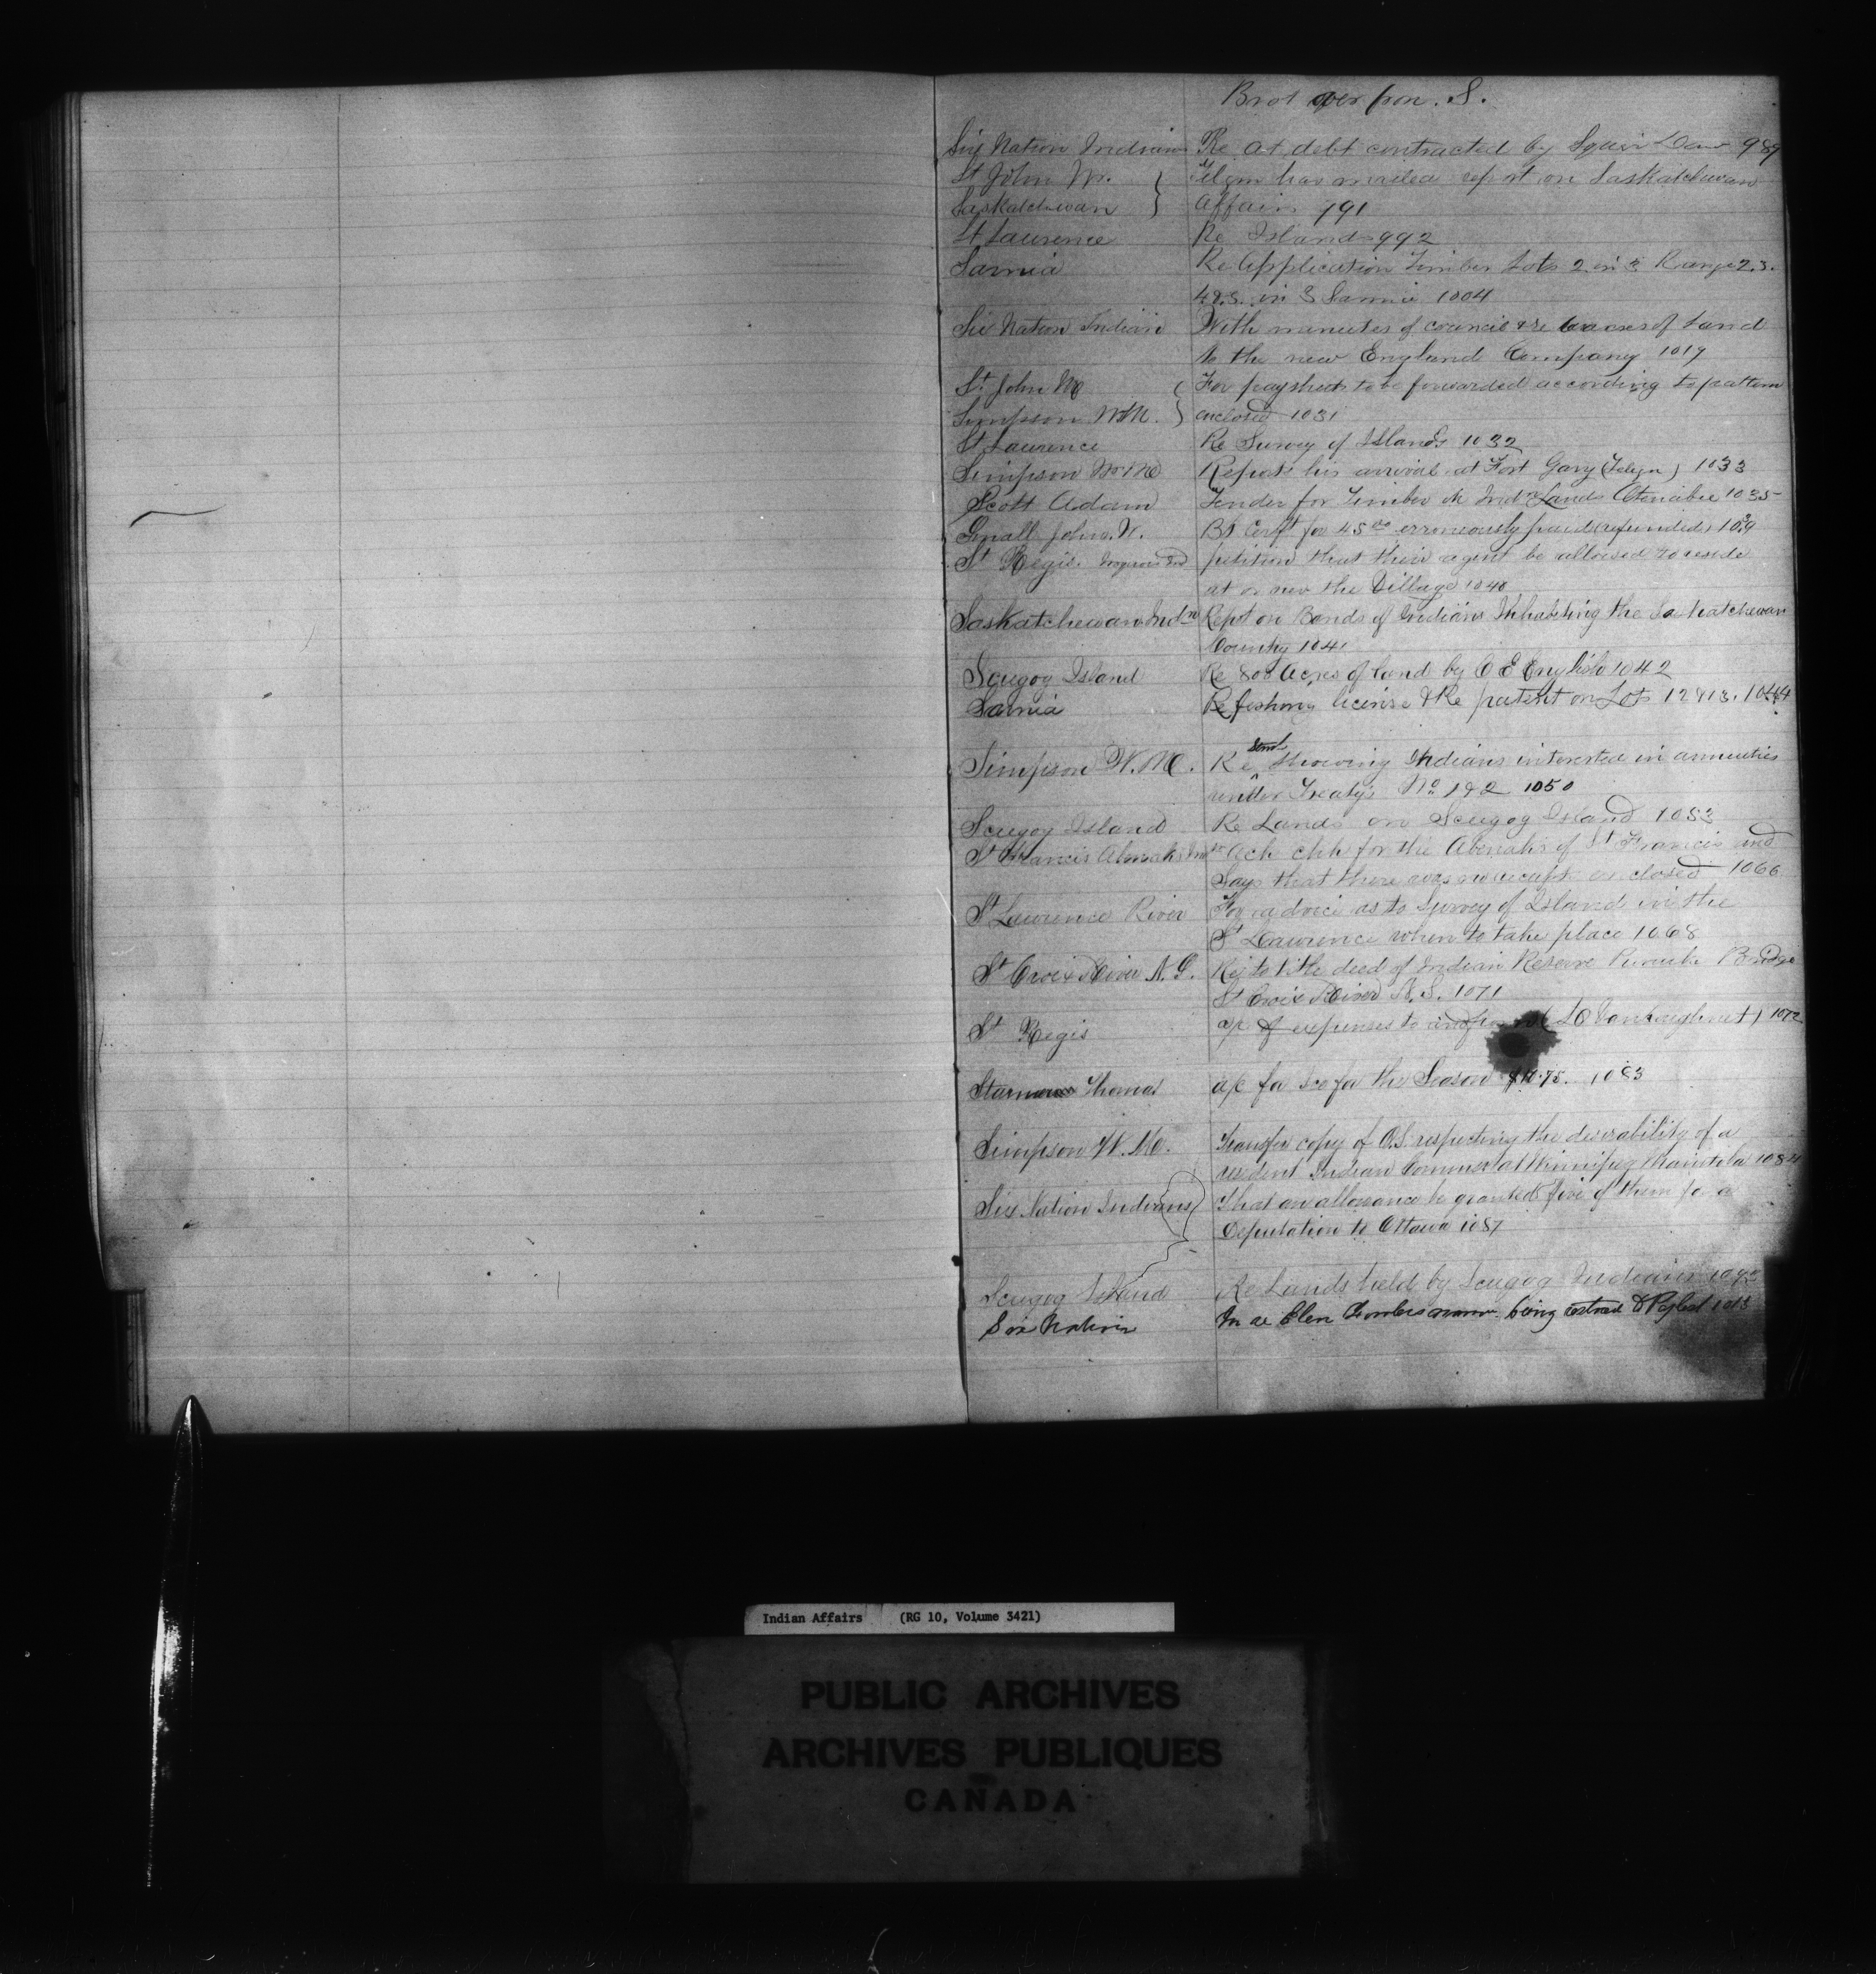 Brot over from S.
Six Nation Indians Re at debt contracted by Squir Daw 989
St John Mr. } Telgm has mailed report on Saskatchewan
Saskatchewan } Affairs 991
St Laurence Re Islands 992
Sarnia Re Application Timber Lots 2 in 3 Range 2.3.
4 & 5. in 3 Sarnia 1004
Six Nation Indian With minutes of council & re acres of Land
to the new England Company 1019
St. John M } For paysheets to be forwarded according to pattern
Simpson W M. } enclosed 1031
St Laurence Re Survey of Islands 1032
Simpson W M Reports his arrival at Fort Gary (Telgm) 1033
Scott Adam Tender for Timber on Indn Lands Otonabee 1035
Small John. W. Bk Cerft for 45 00 erroneously paid (refunded) 1039
St Regis Iroquois Ind petition that their agent be allowed to reside
at or near the Village 1040
Saskatchewan Indns Rept on Bands of Indians Inhabiting the Saskatchewan
Country 1041
Scugog Island Re 800 Acres of land by C E English 1042
Sarnia Re fishing license & Re patent on Lots 12 & 13. 1044
Simpson W. M. Re Stmt showing Indians interested in annuities
under Treaty's No 1 & 2 1050
Scugog Island Re Lands on Scugog Island 1053
St Francis Abenakis Inds Ack chk for the Abenakis of St Francis and
Says that there was no receipt enclosed 1066
St Lawrence River For advice as to Survey of Island in the
St Lawrence when to take place 1068
St Croix River N. S. Rej to title deed of Indian Reserve Bridge
St Croix River N. S. 1071
St Regis a/c of expenses to and from (L Vankoughnet) 1072
Thomas a/c for Ice for the Season $10.75. 1083
Simpson W. M. Transfer copy of O.S. respecting the desirability of a
resident Indian Commisr at Winnipeg Manitoba 1084
Six Nation Indians } That an allowance be granted five of them for a
Deputation to Ottawa 1087
Scugog Island Re Lands held by Scugog Indians 1093
Six Nation In re being restored to Paylist 1013
Indian Affairs (RG 10, Volume 3421)
PUBLIC ARCHIVES
ARCHIVES PUBLIQUES
CANADA